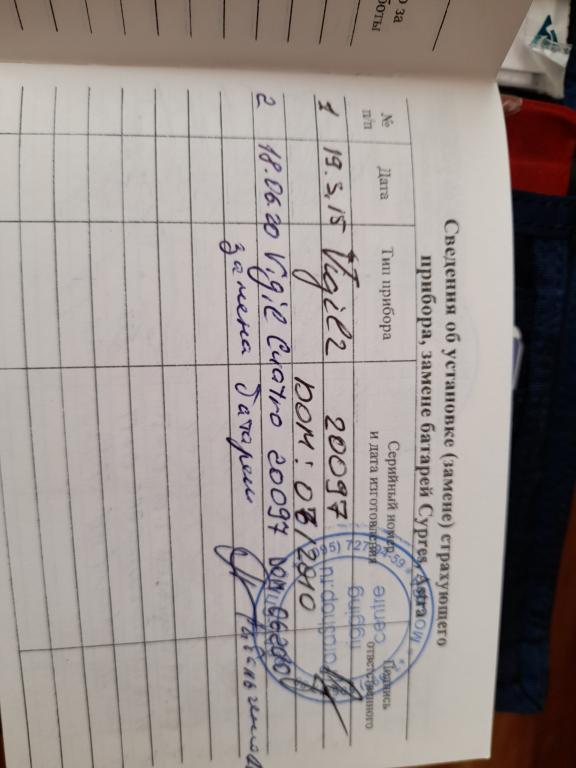 о за
боты
Сведения об установке (замене) страхующего
прибора, замене батарей Cypres, Astra
№
п/п
Дата
Тип прибора
Серийный номер
и дата изготовления
Подпись
ответственного
1 19.5.15 Vigil 2 20097
DOM: 08/2010
2 18.06.20 Vigil 20097 DOM
замена батареи
727-94-59
rigging
centre